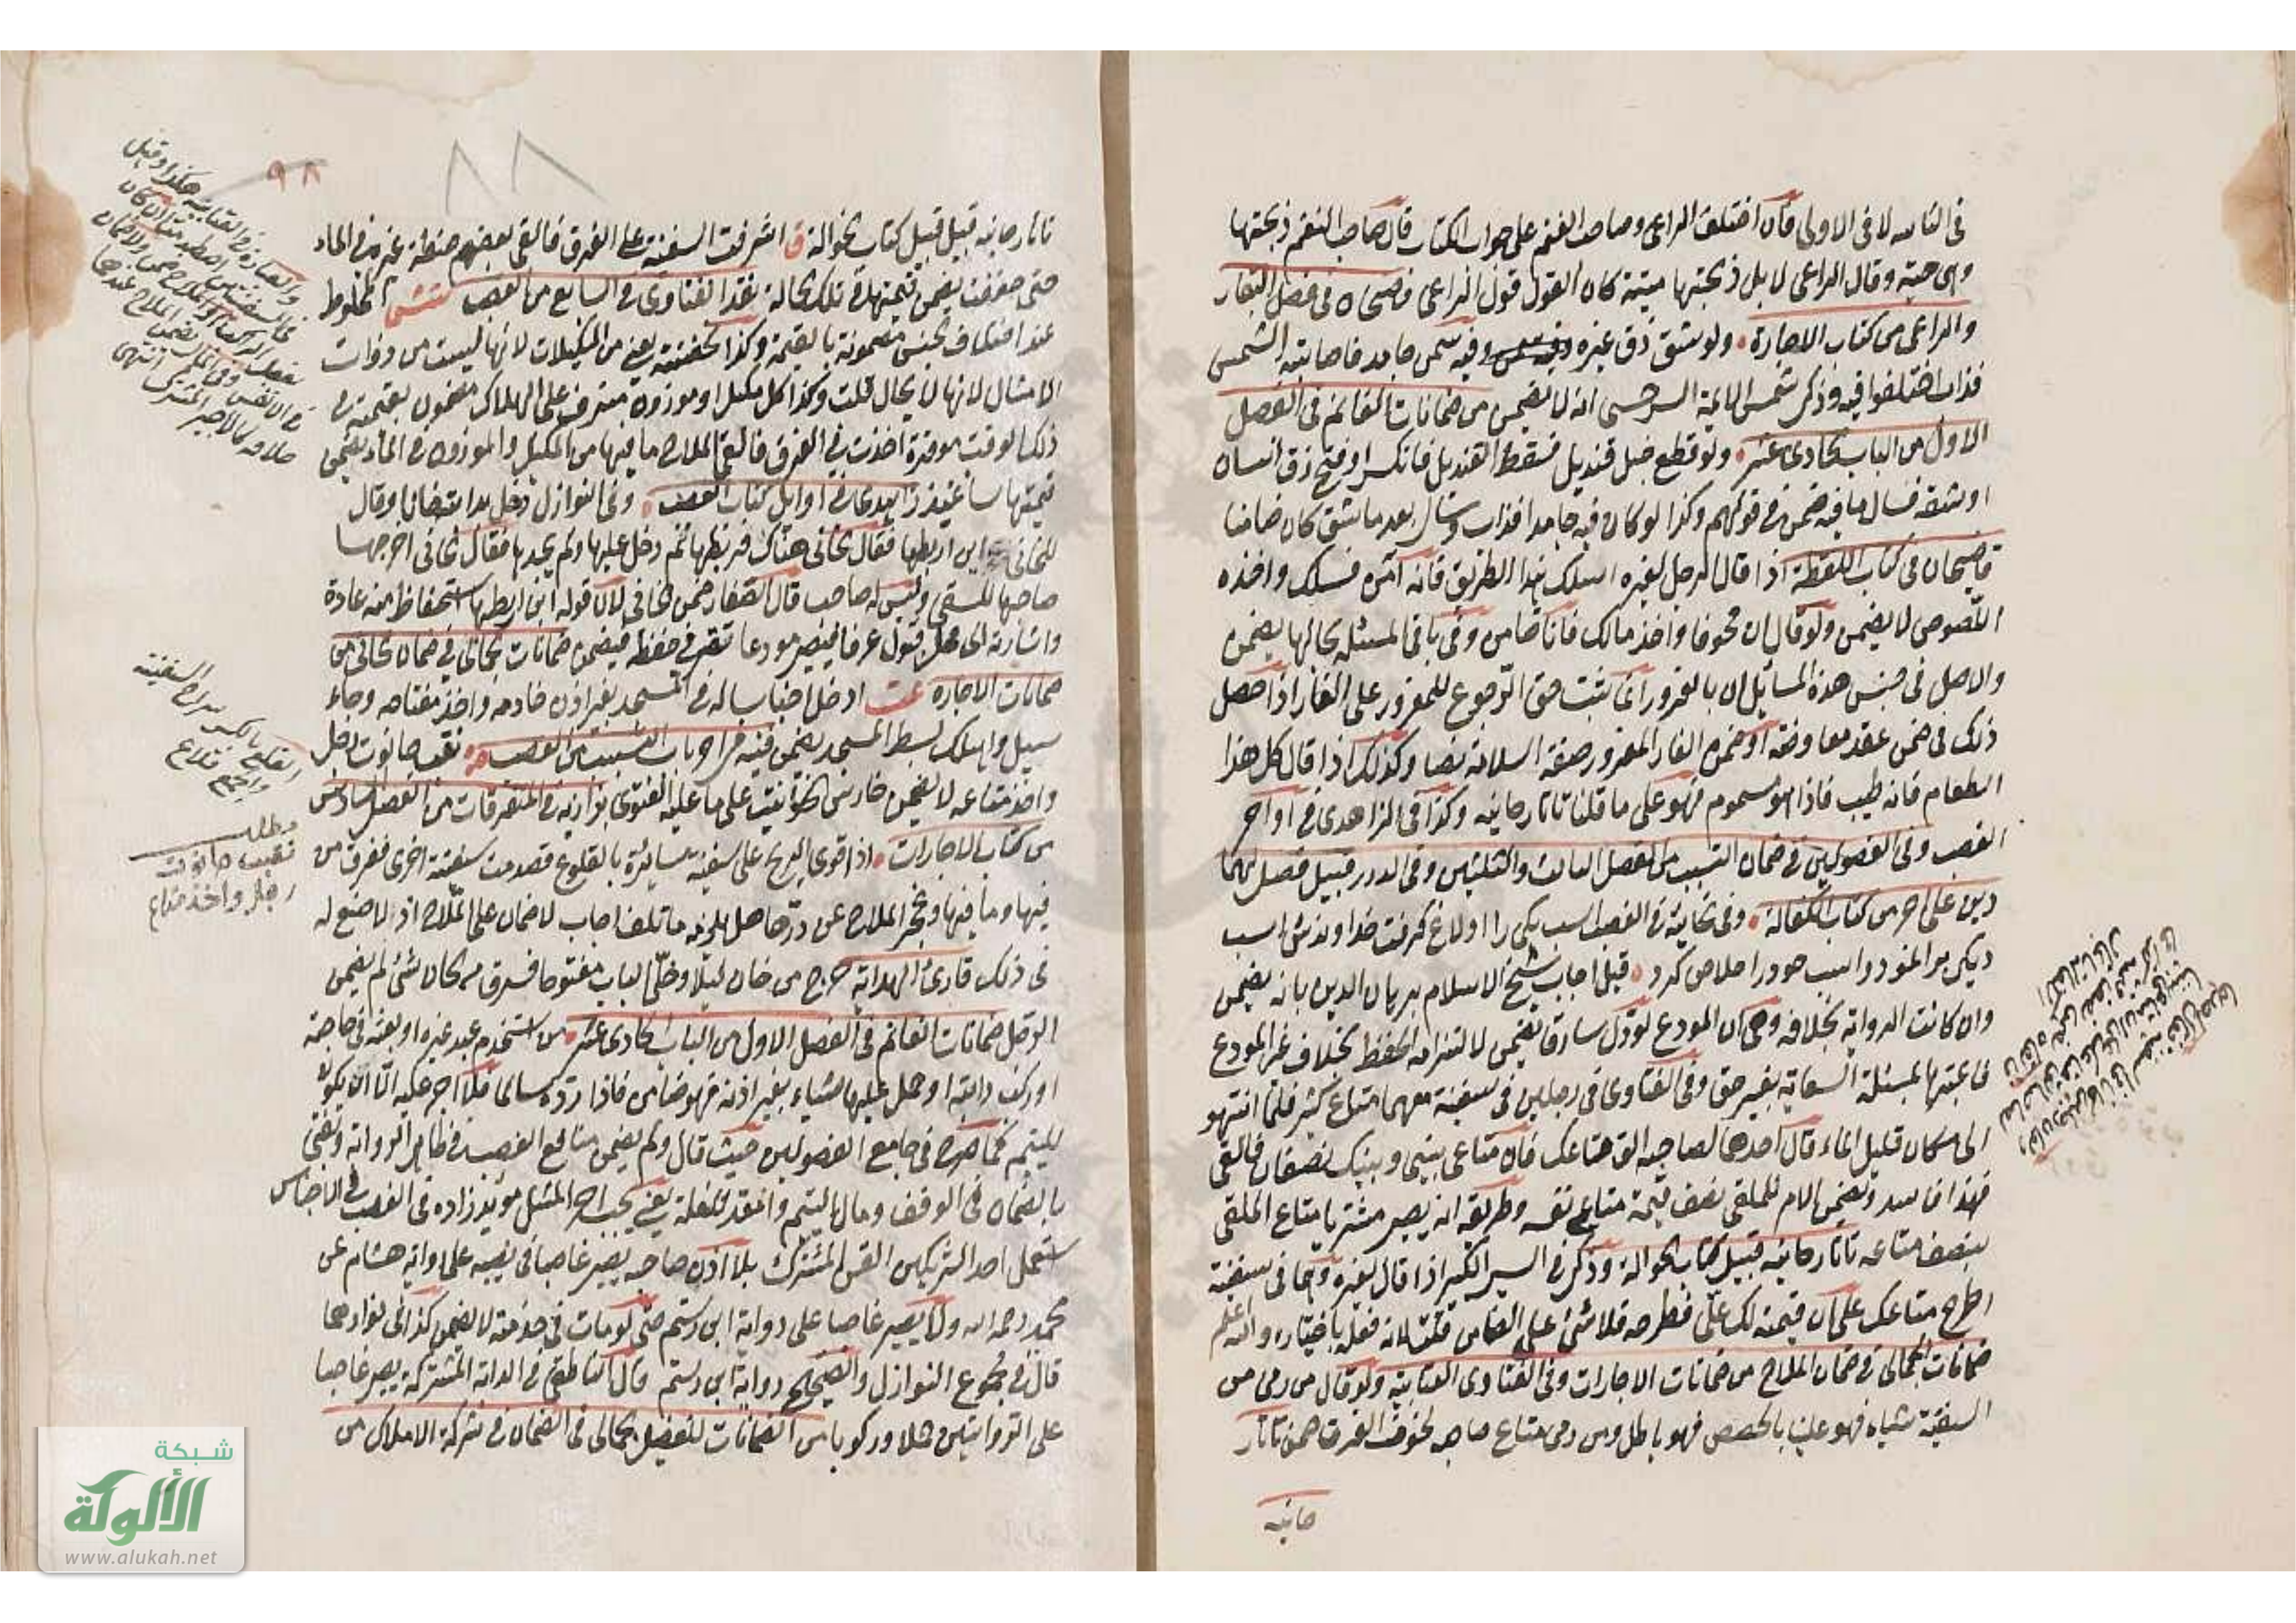 في الثانية لا في الاولى فان اختلف الراعي وصاحب الغنم على جواب الكتاب قال صاحب الغنم ذبحتها
وهي حية وقال الراعي لا بل ذبحتها ميتة كان القول قول الراعي قاضيخان في فصل البقار
والراعي من كتاب الاجارة ولو شق زق غيره وفيه سمن جامد فاصابته الشمس
فذاب اختلفوا فيه وذكر شمس الائمة السرخسي انه لا يضمن من ضمانات الغانم في الفصل
الاول من الباب الحادي عشر ولو قطع حبل قنديل فسقط القنديل فانكسر او فتح زق انسان
او شقه فسال ما فيه ضمن في قولهم وكذا لو كان فيه جامدا فذاب وسال بعد ما شق كان ضامنا
قاضيخان في كتاب اللقطة اذا قال الرجل لغيره اسلك هذا الطريق فانه آمن فسلك واخذه
اللصوص لا يضمن ولو قال ان مخوفا واخذ مالك فانا ضامن وفي باقي المسئلة بحالها يضمن
والاصل في جنس هذه المسائل ان بالغرور انما يثبت حق الرجوع للمغرور على الغار اذا حصل
ذلك في ضمن عقد معاوضة او ضمن الغار المغرور صفة السلامة نصا وكذلك اذا قال كل هذا
الطعام فانه طيب فاذا هو مسموم فهو على ما قلنا تاتارخانيه وكذا في الزاهدي في اواخر
الغصب وفي الفصولين في ضمان التسبب من الفصل الثالث والثلثين وفي الدرر قبيل فصل لهما
دين على آخر من كتاب الكفالة وفي الخانية في الغصب اسب يكي را اولاغ كرفت خداوندش اسب
ديكر براند واسب خود را خلاص كرد قيل اجاب شيخ الاسلام برهان الدين بانه يضمن
وان كانت الرواية بخلافه وهي ان المودع لو دل سارقا يضمن لالتزامه الحفظ بخلاف غير المودع
فاعتبرها بمسئلة السعاية بغير حق وفي الفتاوى في رجلين في سفينة معهما متاع كثير فلما انتهوا
الى مكان قليل الماء قال احدهما لصاحبه الق متاعك فان متاعي بيني وبينك نصفان فالقى
فهذا فاسد ويضمن الآمر للملقي نصف قيمة متاع نفسه وطريقه انه يصير مشتريا متاع الملقي
بنصف متاعه تاتارخانيه قبيل كتاب الحوالة وذكر في السير الكبير اذا قال لغيره وهما في سفينة
اطرح متاعك على ان قيمته لك علي فطرحه فلا شئ على الضامن قلت لانه فعله باختياره والله اعلم
ضمانات الجمالي في ضمان الملاح من ضمانات الاجارات وفي الفتاوى العتابية ولو قال من رمى من
السفينة شياه فهو علينا بالحصص فهو باطل ومن رمى متاع صاحبه لخوف الغرق ضمن تاتار
خانيه
٩٨
٨٨
تاتارخانيه قبيل قبيل كتاب الحوالة ق اشرفت السفينة على الغرق فالقى بعضهم حنطة غيره في الماء
حتى خففت يضمن قيمتها في تلك الحالة نقد الفتاوى في السابع من الغصب المخلوط
عند اختلاف الجنس مضمونة بالقيمة وكذا الحفنة يعني من المكيلات لانها ليست من ذوات
الامثال لانها لا يكال قلت وكذا كل مكيل وموزون مشرف على الهلاك مضمون بقيمته في
ذلك الوقت موقرة اخذت في الغرق فالقى الملاح ما فيها من المكيل والموزون في الماء يضمن
قيمتها ساعتئذ زاهدي في اوائل كتاب الغصب وفي النوازل دخل بدابته خانا وقال
للخاني اين اربطها فقال الخاني هناك فربطها ثم دخل عليها ولم يجدها فقال الخاني اخرجها
صاحبها للسقي وليس له صاحب قال الصفار ضمن الخاني لان قوله اين اربطها استحفاظ منه عادة
واشارته الى محل قبول عرفا فيصير مودعا تقصر في حفظه فيضمن ضمانات الجمالي في ضمان الخاني من
ضمانات الاجاره عت ادخل اجناسا له في المسجد بغير اذن خادمه واخذ مفتاحه وجاء
سيل واهلك بسط المسجد يضمن قنيه في آخر باب التسبب من الغصب نقب حانوت رجل
واخذ متاعه لا يضمن حارس الحوانيت على ما عليه الفتوى بزازيه في المتفرقات من الفصل السادس
من كتاب الاجارات اذا قوي الريح على سفينة سائرة بالقلوع فصدمت سفينة اخرى فغرق من
فيها وما فيها وعجز الملاح عن ردها هل يلزمه ما تلف اجاب لا ضمان على الملاح اذ لا صنع له
في ذلك قارئ الهدايه خرج من خان ليلا وخلى الباب مفتوحا فسرق من الخان شئ لم يضمن
الرجل ضمانات الغانم في الفصل الاول من الباب الحادي عشر من استخدم عبد غيره او بعثه في حاجته
او ركب دابته او حمل عليها شياء بغير اذنه فهو ضامن فاذا رده سالما فلا اجر عليه الا ان يكون
لليتيم كما صرح في جامع الفصولين حيث قال ولم يضمن منافع الغصب في ظاهر الرواية ونفتي
بالضمان في الوقف ومال اليتيم والمعد للغلة يعني يجب اجر المثل مؤيد زاده في الغصب في الاجناس
استعمل احد الشريكين القن المشترك بلا اذن صاحبه يصير غاصبا في نصيبه على رواية هشام عن
محمد رحمه الله ولا يصير غاصبا على رواية ابن رستم حتى لو مات في خدمته لا يضمن كذا في نوادرهما
قال في مجموع النوازل والصحيح رواية ابن رستم قال الناطفي في الدابة المشتركة يصير غاصبا
على الروايتين حملا وركوبا من الضمانات للفضيل الجمالي في الضمان في شركة الاملاك من
القلع بالكسر شراع السفينة
والجمع قلاع
مطلب
نقب حانوت
رجل واخذ متاع
شبكة
الألوكة
www.alukah.net